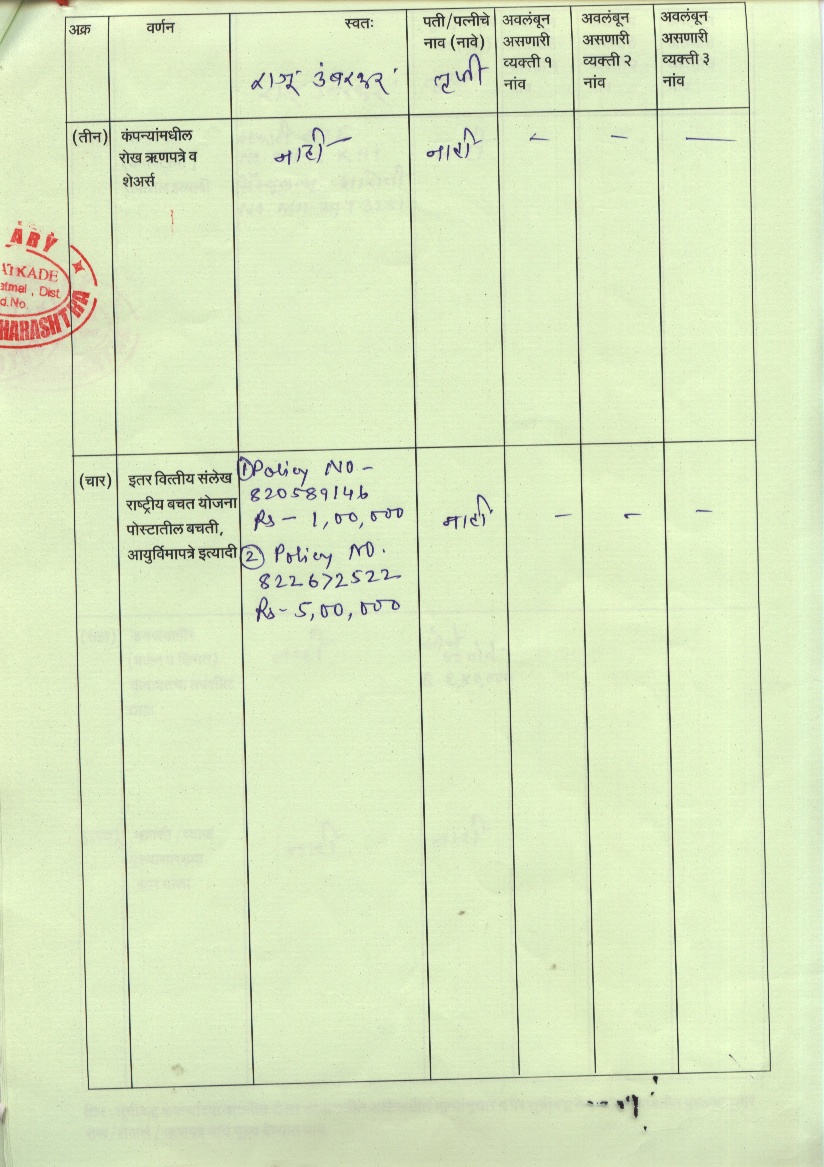 अक्र
वर्णन
स्वतः
राजू उंबरकर
पती/पत्नीचे
नाव (नावे)
तृप्ती
अवलंबून
असणारी
व्यक्ती १
नांव
अवलंबून
असणारी
व्यक्ती २
नांव
अवलंबून
असणारी
व्यक्ती ३
नांव
(तीन)
कंपन्यांमधील
रोख ऋणपत्रे व
शेअर्स
नाही
नाही
–
–
—
ARY
ATKADE
atmal , Dist
d.No.
HARASHTRA
(चार)
इतर वित्तीय संलेख
राष्ट्रीय बचत योजना
पोस्टातील बचती,
आयुर्विमापत्रे इत्यादी
① Policy NO -
820589146
Rs - 1,00,000
② Policy NO.
822672522
Rs - 5,00,000
नाही
–
–
–